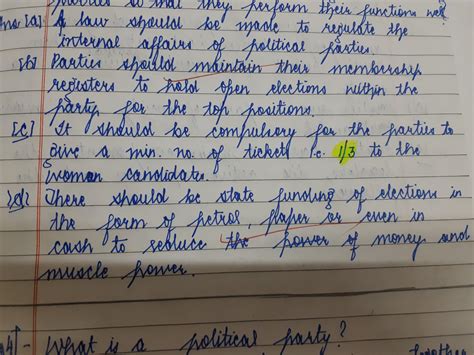 parties so that they perform their functions well
Ans [a] A law should be made to regulate the
internal affairs of political parties.
[b] Parties should maintain their membership
registers to hold open elections within the
party for the top positions.
[c] It should be compulsory for the parties to
give a min. no. of tickets i.e. 1/3 to the
woman candidates.
[d] There should be state funding of elections in
the form of petrol, paper or even in
cash to reduce the power of money and
muscle power.
What is a political party?